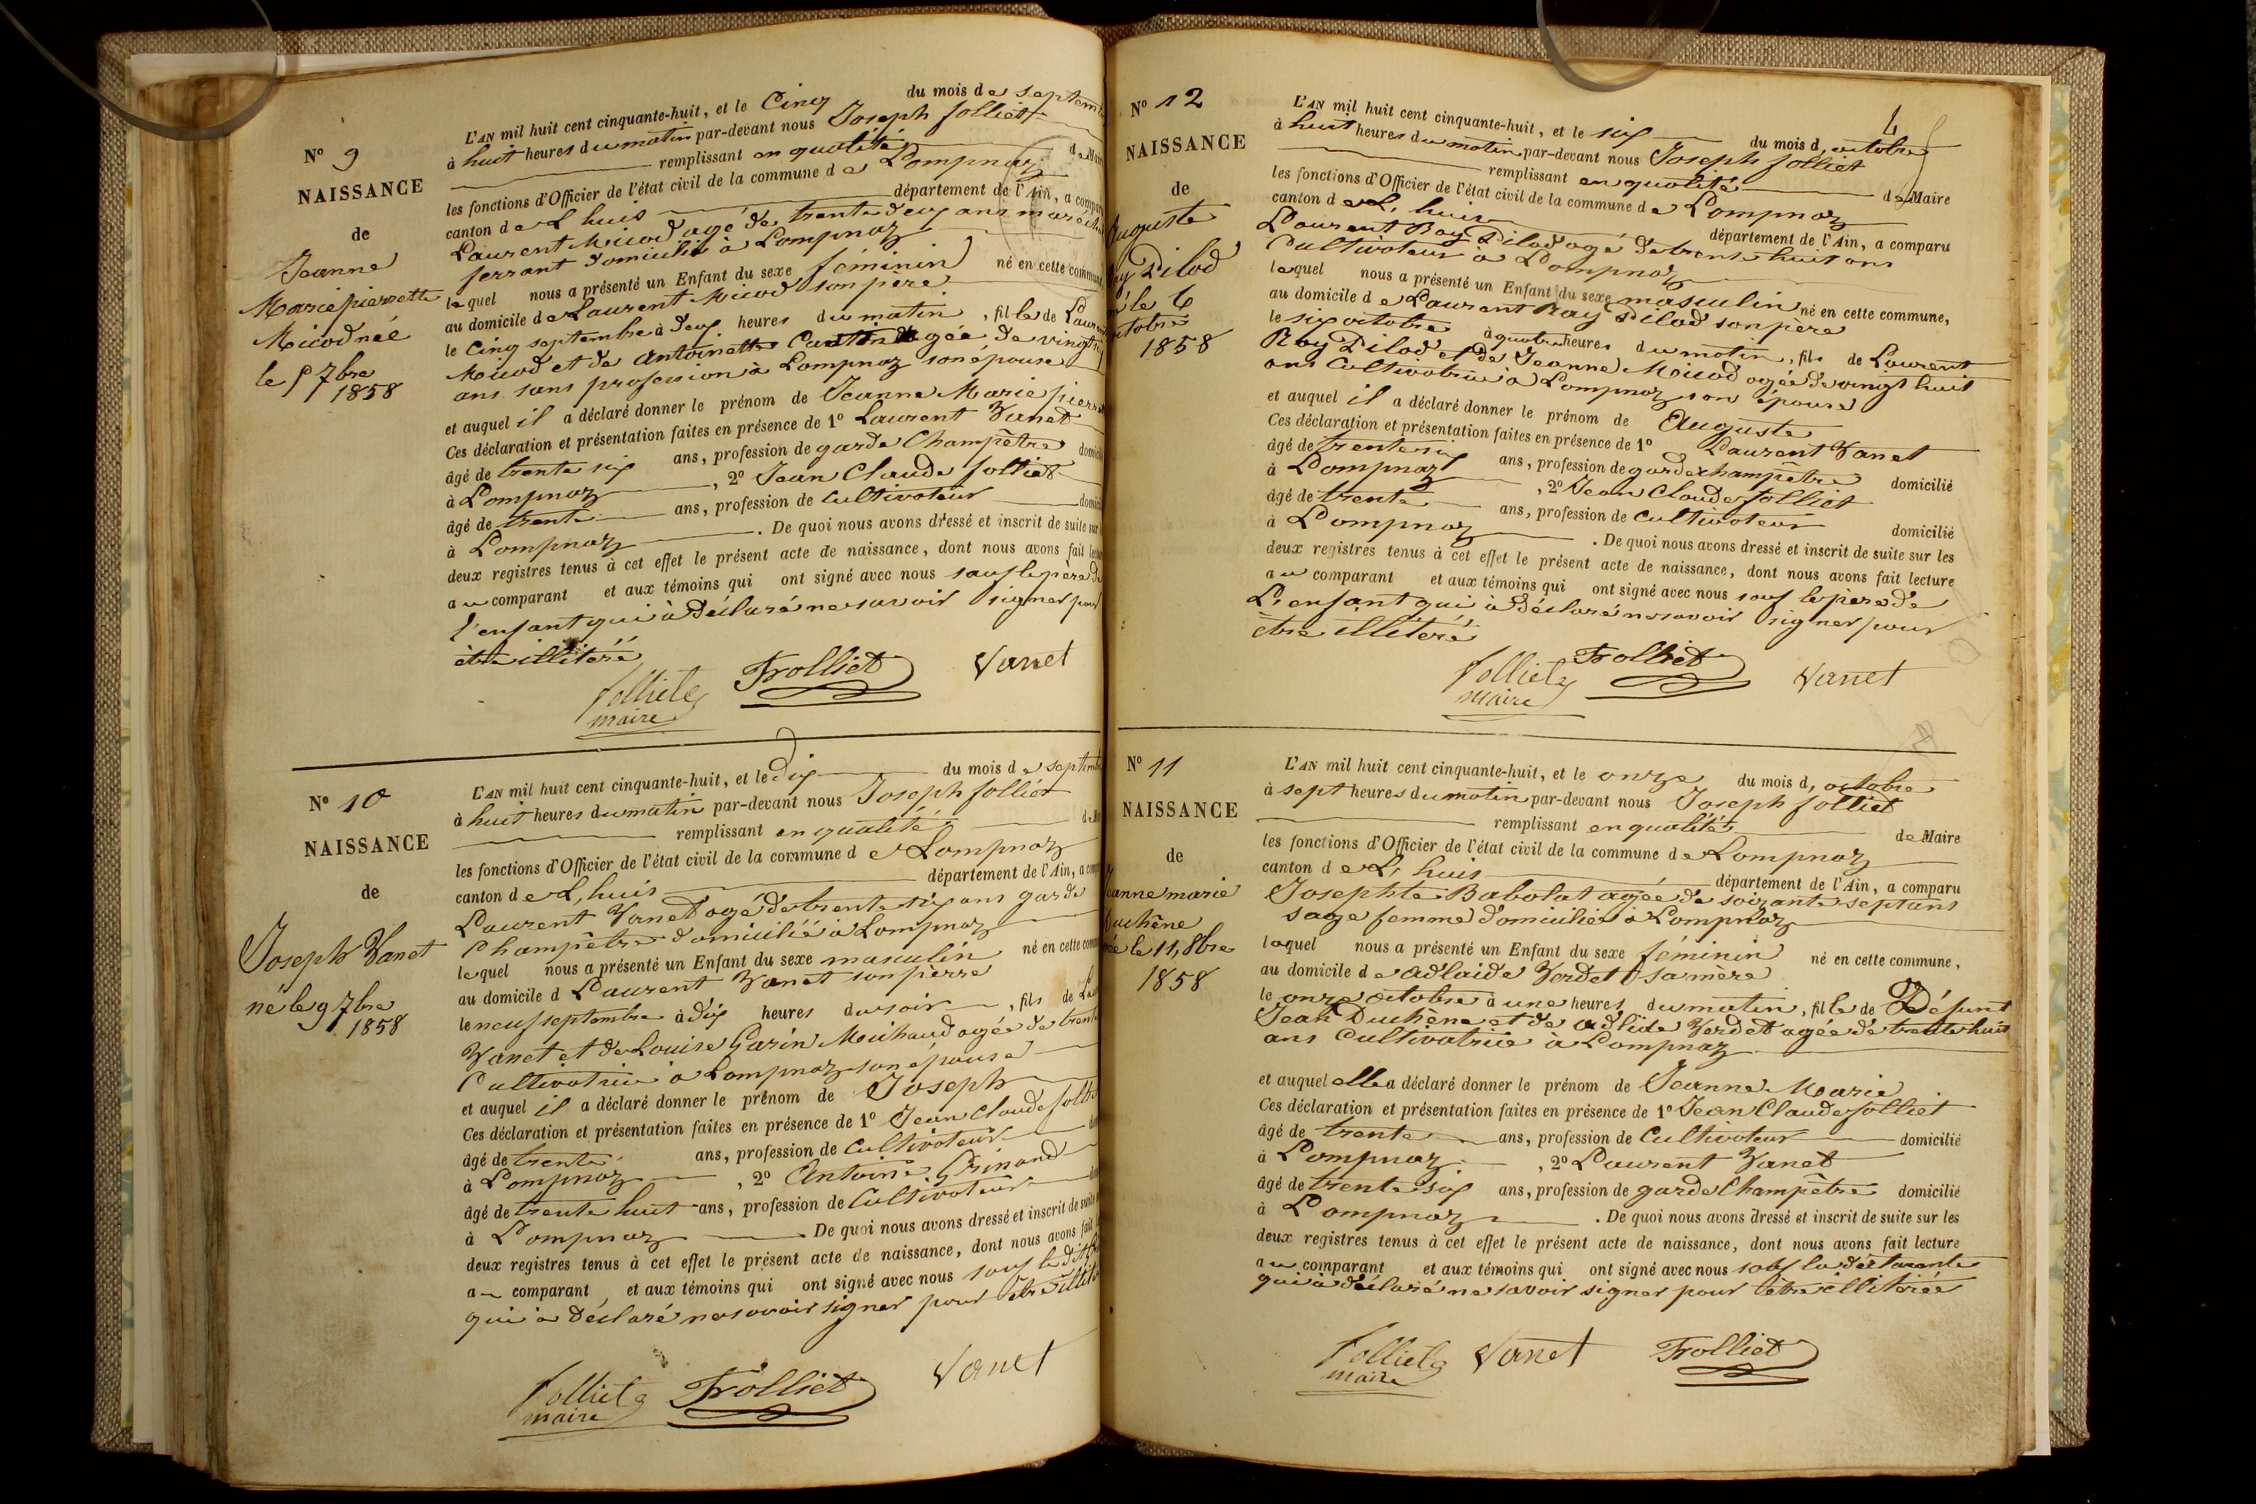 N° 9
NAISSANCE
de
Jeanne
Marie pierrette
Micod née
le 5 7bre
1858
L'AN mil huit cent cinquante-huit, et le Cinq du mois de septem
à huit heures du matin par-devant nous Joseph folliet
remplissant en qualité de Mai
les fonctions d'Officier de l'état civil de la commune de Lompnaz
canton de L'huis département de l'Ain, a compar
Laurent Micod agé de trente deux ans maréchal
ferrant domicilié à Lompnaz
lequel nous a présenté un Enfant du sexe féminin né en cette commune,
au domicile de Laurent Micod son père
le Cinq septembre à deux heures du matin, fille de Laurent
Micod et de Antoinette agée de vingt
ans sans profession à Lompnaz son épouse
et auquel il a déclaré donner le prénom de Jeanne Marie pierre
Ces déclaration et présentation faites en présence de 1° Laurent Vanet
âgé de trente six ans, profession de garde Champêtre domicilié
à Lompnaz, 2° Jean Claude folliet
âgé de trente ans, profession de Cultivateur domicilié
à Lompnaz. De quoi nous avons dressé et inscrit de suite sur
deux registres tenus à cet effet le présent acte de naissance, dont nous avons fait lecture
au comparant et aux témoins qui ont signé avec nous sauf le père de
l'enfant qui à déclaré ne savoir signer pour
être illiteré
folliet
maire
Trolliet
Vanet
N° 10
NAISSANCE
de
Joseph Vanet
né le 9 7bre
1858
L'AN mil huit cent cinquante-huit, et le dix du mois de septembre
à huit heures du matin par-devant nous Joseph folliet
remplissant en qualité de Mai
les fonctions d'Officier de l'état civil de la commune de Lompnaz
canton de L,huis département de l'Ain, a comp
Laurent Vanet agé de trente six ans garde
Champêtre domicilié à Lompnaz
lequel nous a présenté un Enfant du sexe masculin né en cette commu
au domicile d Laurent Vanet son pierre
le neuf septembre à dix heures du soir, fils de Lau
Vanet et de Louise Garin Michaud agée de trente
Cultivatrice à Lompnaz son épouse
et auquel il a déclaré donner le prénom de Joseph
Ces déclaration et présentation faites en présence de 1° Jean Claude folliet
âgé de trente ans, profession de Cultivateur dom
à Lompnaz, 2° Antoine Grinand
âgé de trente huit ans, profession de Cultivateur dom
à Lompnaz. De quoi nous avons dressé et inscrit de suite
deux registres tenus à cet effet le présent acte de naissance, dont nous avons fait
au comparant, et aux témoins qui ont signé avec nous sauf le
qui a déclaré ne savoir signer pour être illite
folliet
maire
Trolliet
Vanet
4
N° 12
NAISSANCE
de
Auguste
Ray Dilod
né le 6
octobre
1858
L'AN mil huit cent cinquante-huit, et le six du mois d, octobre
à huit heures du matin par-devant nous Joseph folliet
remplissant en qualité de Maire
les fonctions d'Officier de l'état civil de la commune de Lompnaz
canton de L, huis département de l'Ain, a comparu
Laurent Ray Dilod agé de trente huit ans
Cultivateur à Lompnaz
lequel nous a présenté un Enfant du sexe masculin né en cette commune,
au domicile de Laurent Ray Dilod son père
le six octobre à quatre heures du matin, fils de Laurent
Ray Dilod et de Jeanne Micod agée de vingt huit
ans Cultivatrice à Lompnaz son épouse
et auquel il a déclaré donner le prénom de Auguste
Ces déclaration et présentation faites en présence de 1° Laurent Vanet
âgé de trente six ans, profession de garde champêtre domicilié
à Lompnaz, 2° Jean Claude folliet
âgé de trente ans, profession de Cultivateur domicilié
à Lompnaz. De quoi nous avons dressé et inscrit de suite sur les
deux registres tenus à cet effet le présent acte de naissance, dont nous avons fait lecture
au comparant et aux témoins qui ont signé avec nous sauf le père de
L'enfant qui à déclaré ne savoir signer pour
être illiteré
folliet
maire
Trolliet
Vanet
N° 11
NAISSANCE
de
Jeanne marie
Duchêne
née le 11, 8bre
1858
L'AN mil huit cent cinquante-huit, et le onze du mois d, octobre
à sept heures du matin par-devant nous Joseph folliet
remplissant en qualité de Maire
les fonctions d'Officier de l'état civil de la commune de Lompnaz
canton de L, huis département de l'Ain, a comparu
Josephte Babolat agée de soixante sept ans
sage femme domiciliée à Lompnaz
laquel nous a présenté un Enfant du sexe féminin né en cette commune,
au domicile de adlaide Verdet sa mère
le onze octobre à une heures du matin, fille de Défunt
Jean Duchêne et de adlide Verdet agée de trente huit
ans Cultivatrice à Lompnaz
et auquel elle a déclaré donner le prénom de Jeanne Marie
Ces déclaration et présentation faites en présence de 1° Jean Claude folliet
âgé de trente ans, profession de Cultivateur domicilié
à Lompnaz, 2° Laurent Vanet
âgé de trente six ans, profession de garde Champêtre domicilié
à Lompnaz. De quoi nous avons dressé et inscrit de suite sur les
deux registres tenus à cet effet le présent acte de naissance, dont nous avons fait lecture
au comparant et aux témoins qui ont signé avec nous sauf la déclarante
qui à déclaré ne savoir signer pour être illiterée
folliet
maire
Vanet
Trolliet